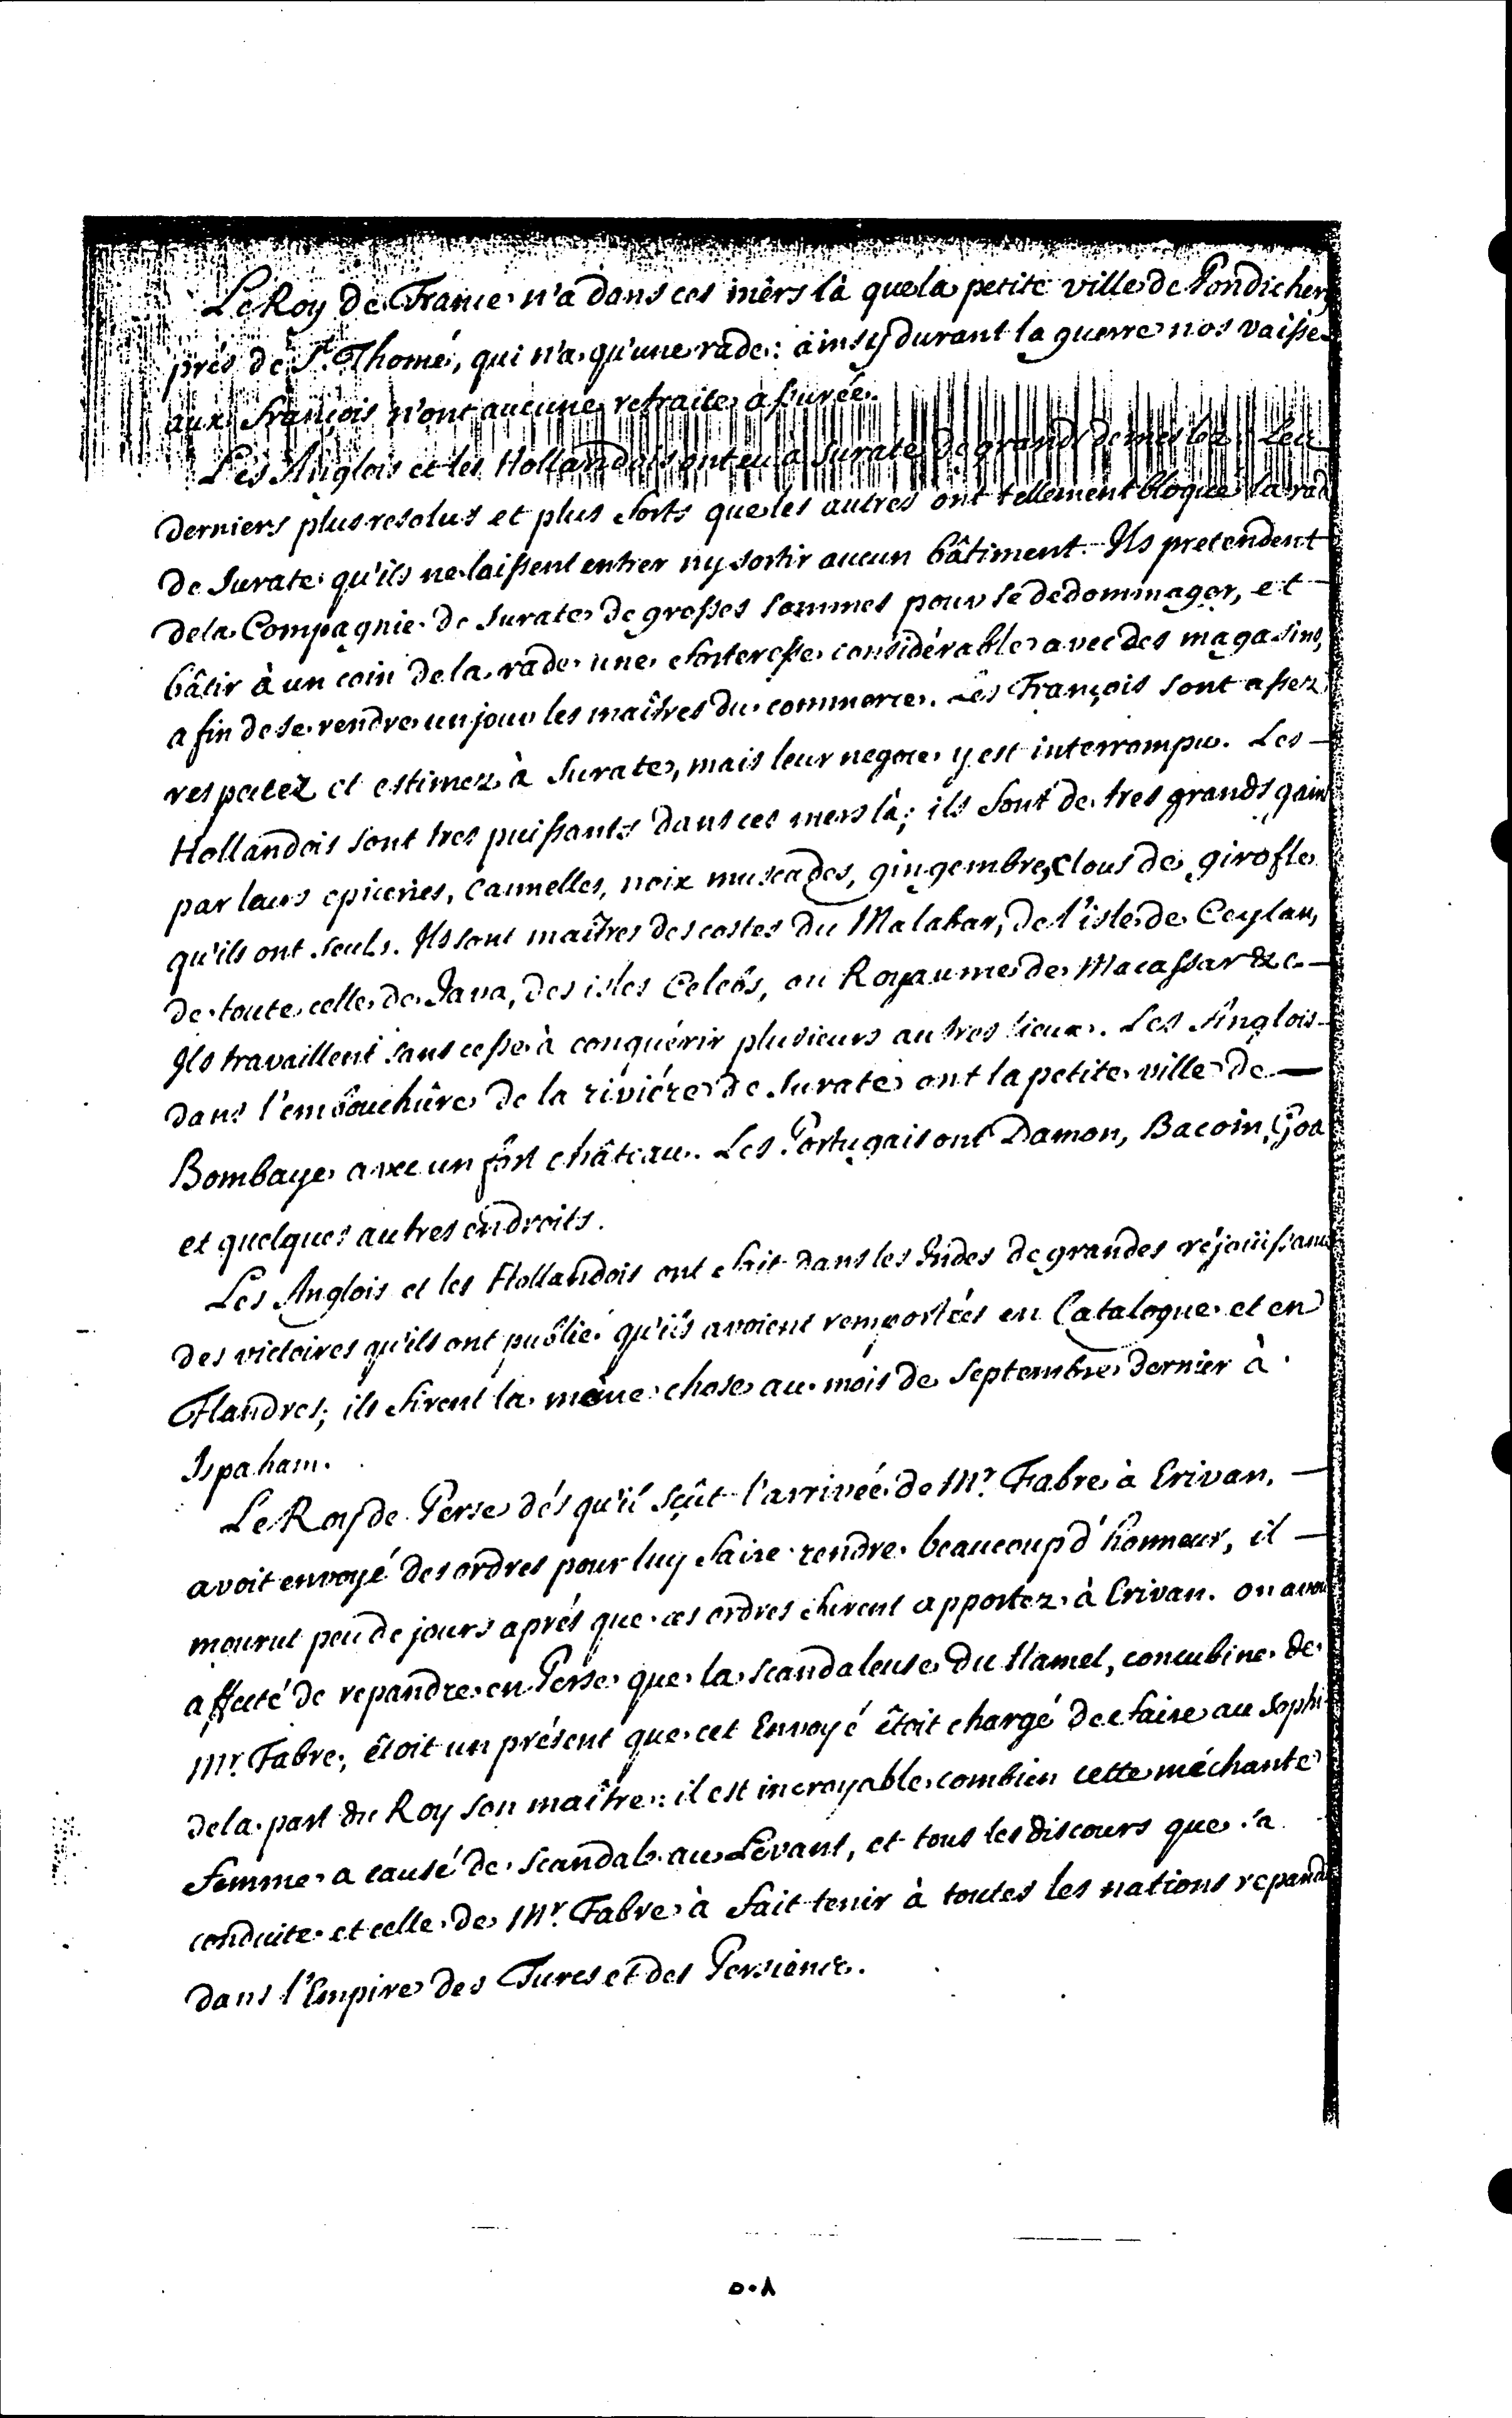 Le Roy de France n'a dans ces mêrs là que la petite ville de Pondichery
prés de St. Thomé, qui n'a qu'une rade: ainsy durant la guerre nos vaisse-
aux françois n'ont aucune retraite assurée.
Les Anglois et les Hollandois ont eu à Surate de grands demeslez. Ces
derniers plus resolus et plus forts que les autres ont tellement bloqué la rade
de Surate qu'ils ne laissent entrer ny sortir aucun bâtiment. Ils pretendent
de la Compagnie de Surate de grosses sommes pour se dedommager, et
bâtir à un coin de la rade une forteresse considérable avec des magasins,
afin de se rendre un jour les maîtres du commerce. Les François sont assez
respectez et estimez à Surate, mais leur negoce y est interrompu. Les
Hollandois sont tres puissants dans ces mers là; ils font de tres grands gains
par leurs epiceries, cannelles, noix muscades, gingembre, clous de girofle
qu'ils ont seuls. Ils sont maîtres des costes du Malabar, de l'isle de Ceylan,
de toute celle de Java, des isles Celebs, ou Royaume de Macassar &c.
Ils travaillent sans cesse à conquérir plusieurs autres lieux. Les Anglois
dans l'embouchûre de la riviére de Surate ont la petite ville de
Bombaye avec un fort château. Les Portugais ont Damon, Bacoin, Goa
et quelques autres endroits.
Les Anglois et les Hollandois ont fait dans les Indes de grandes réjoüissances
des victoires qu'ils ont publié qu'ils avoient remportées en Catalogue et en
Flandres; ils firent la même chose au mois de Septembre dernier à
Ispaham.
Le Roy de Perse dés qu'il sçût l'arrivée de Mr. Fabre à Erivan,
avoit envoyé des ordres pour luy faire rendre beaucoup d'honneur, il
mourut peu de jours aprés que ces ordres furent apportez à Erivan. on avoit
affecté de repandre en Perse que la scandaleuse du Hamel, concubine de
Mr. Fabre, étoit un présent que cet Envoyé êtoit chargé de faire au Sophi
de la part du Roy son maître: il est incroyable combien cette méchante
femme a causé de scandale au Levant, et tous les discours que sa
conduite et celle de Mr. Fabre à fait tenir à toutes les nations repandu
dans l'Empire des Turcs et des Persiens.
٥٠٨